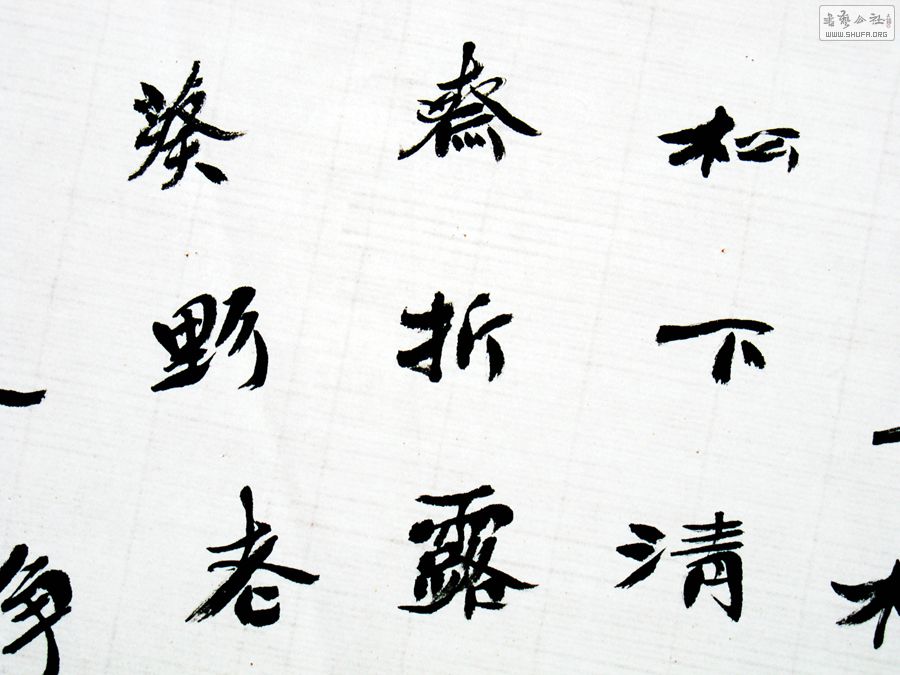 松下清
齋折露
葵野老
争
書藝公社
WWW.SHUFA.ORG